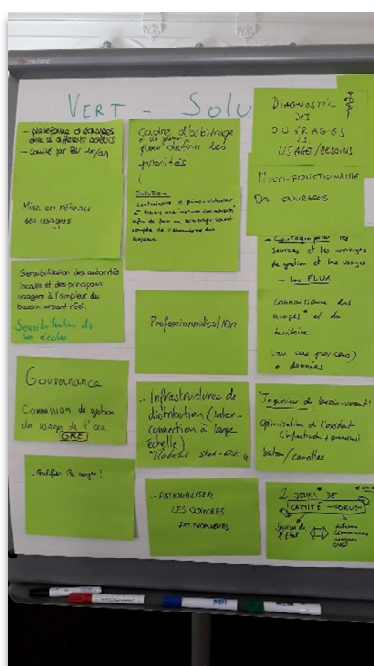 VERT - Solu
- plateforme d'échanges
entre les différents acteurs
- comité par BV 1x/an
Mise en réseau
des usagers
Sensibilisation des autorités
locales et des principaux
usagers à l'ampleur du
bassin versant réel.
Sensibilisation ds
les écoles
Gouvernance
Commission de gestion
des usages de l'eau
GRE
Cadre d'arbitrage
pour définir les
priorités
Solution
compte de l'ensemble des
besoins.
Professionnalisation
- Infrastructures de
distribution (inter-
connection à large
échelle)
- RATIONALISER
LES
DIAGNOSTIC
DES
OUVRAGES
ls
USAGE/BESOINS
MULTI-FONCTIONNALITÉ
DES OUVRAGES
- Cartographier les
sources et les ouvrages
de gestion et les usages
- les FLUX
connaissance des
usages et du
territoire
données
Ingénieur de bassin-versant
Optimisation de l'existant
(infrastructure, processus)
bâton/carottes
2 jours de
COMITÉ - FORUM
l'État